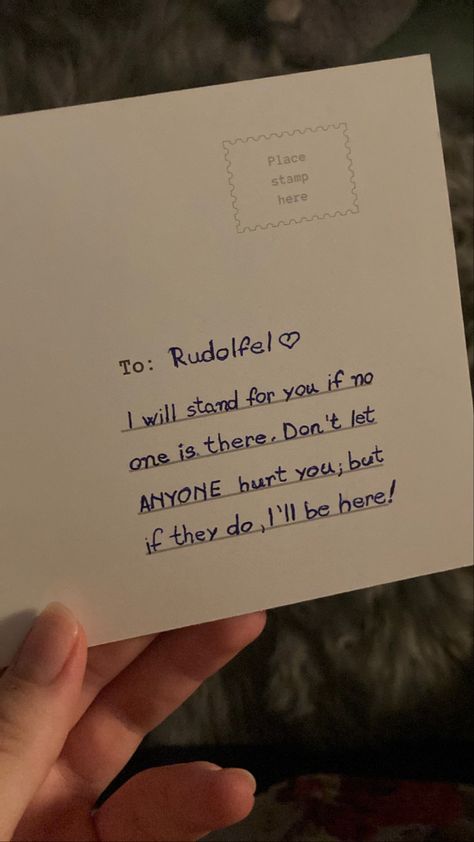 Place
stamp
here
To: Rudolfel♡
I will stand for you if no
one is there. Don't let
ANYONE hurt you; but
if they do, I'll be here!